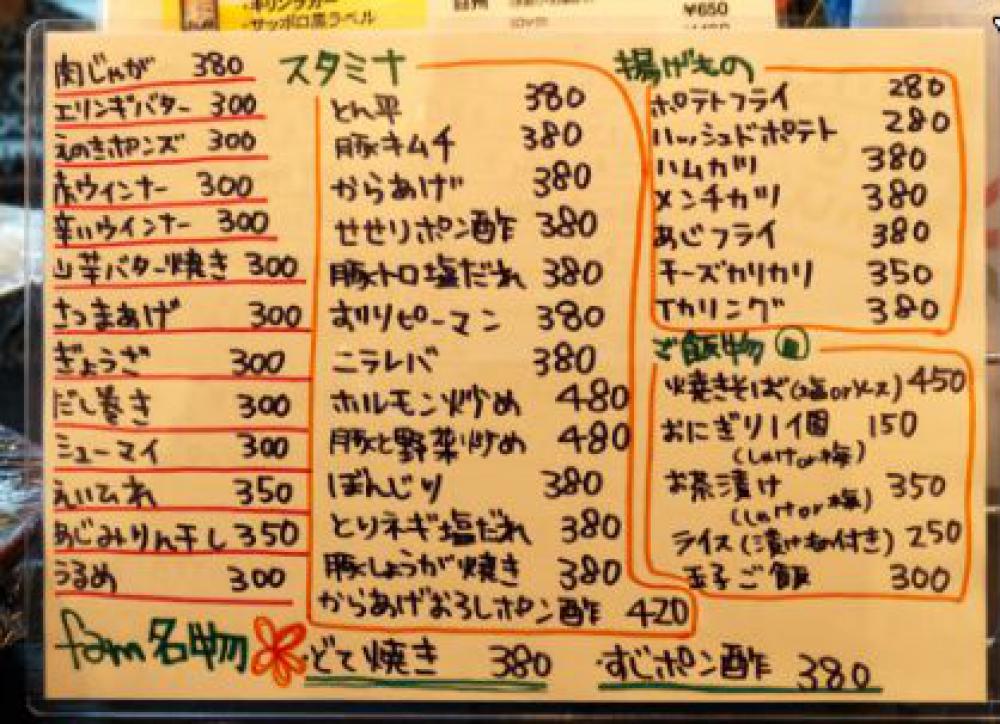 キリンラガー
・サッポロ黒ラベル
¥650
肉じゃが 380
エリンギバター 300
えのきポンズ 300
赤ウインナー 300
辛いウインナー 300
山芋バター焼き 300
さつまあげ 300
ぎょうざ 300
だし巻き 300
シューマイ 300
えいひれ 350
あじみりん干し 350
うるめ 300
スタミナ
とん平 380
豚キムチ 380
からあげ 380
せせりポン酢 380
豚トロ塩だれ 380
ずりピーマン 380
ニラレバ 380
ホルモン炒め 480
豚と野菜炒め 480
ぼんじり 380
とりネギ塩だれ 380
豚しょうが焼き 380
からあげおろしポン酢 420
揚げもの
ポテトフライ 280
ハッシュドポテト 280
ハムカツ 380
メンチカツ 380
あじフライ 380
チーズカリカリ 350
イカリング 380
ご飯物
焼きそば(塩orソース) 450
おにぎり1個 150
(しゃけor梅)
お茶漬け 350
(しゃけor梅)
ライス(漬け物付き) 250
玉子ご飯 300
fam名物
・どて焼き 380
・すじポン酢 380